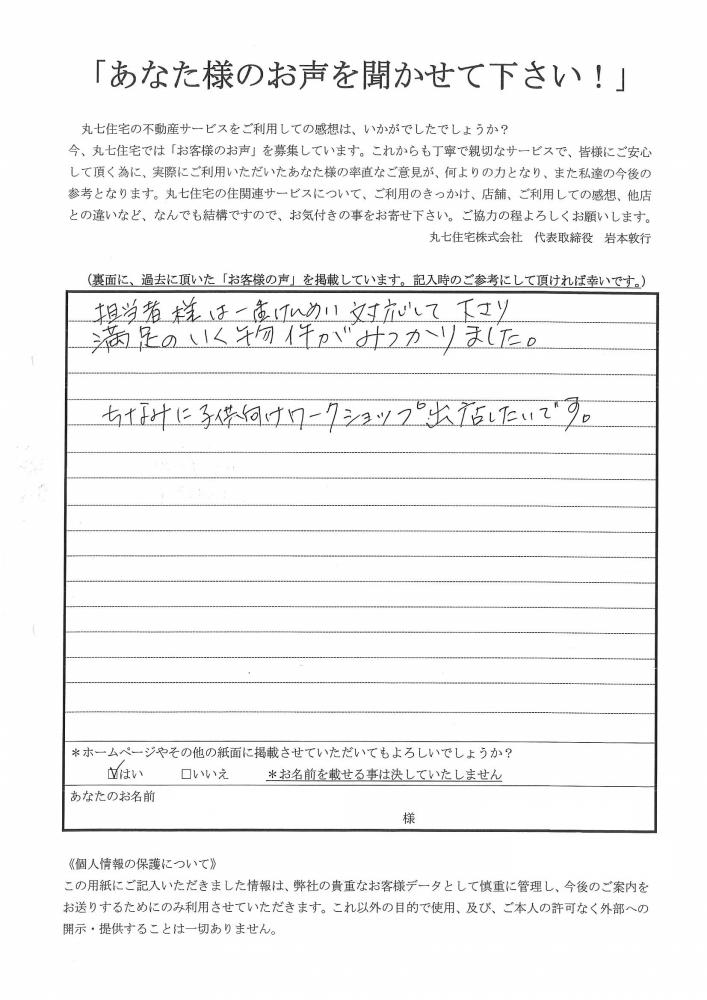 「あなた様のお声を聞かせて下さい！」
丸七住宅の不動産サービスをご利用しての感想は、いかがでしたでしょうか？
今、丸七住宅では「お客様のお声」を募集しています。これからも丁寧で親切なサービスで、皆様にご安心
して頂く為に、実際にご利用いただいたあなた様の率直なご意見が、何よりの力となり、また私達の今後の
参考となります。丸七住宅の住関連サービスについて、ご利用のきっかけ、店舗、ご利用しての感想、他店
との違いなど、なんでも結構ですので、お気付きの事をお寄せ下さい。ご協力の程よろしくお願いします。
丸七住宅株式会社　代表取締役　岩本敦行
（裏面に、過去に頂いた「お客様の声」を掲載しています。記入時のご参考にして頂ければ幸いです。）
担当者様は一生けんめい対応して下さり
満足のいく物件がみつかりました。
ちなみに子供向けワークショップ出店したいです。
＊ホームページやその他の紙面に掲載させていただいてもよろしいでしょうか？
☑はい　□いいえ　＊お名前を載せる事は決していたしません
あなたのお名前
様
《個人情報の保護について》
この用紙にご記入いただきました情報は、弊社の貴重なお客様データとして慎重に管理し、今後のご案内を
お送りするためにのみ利用させていただきます。これ以外の目的で使用、及び、ご本人の許可なく外部への
開示・提供することは一切ありません。